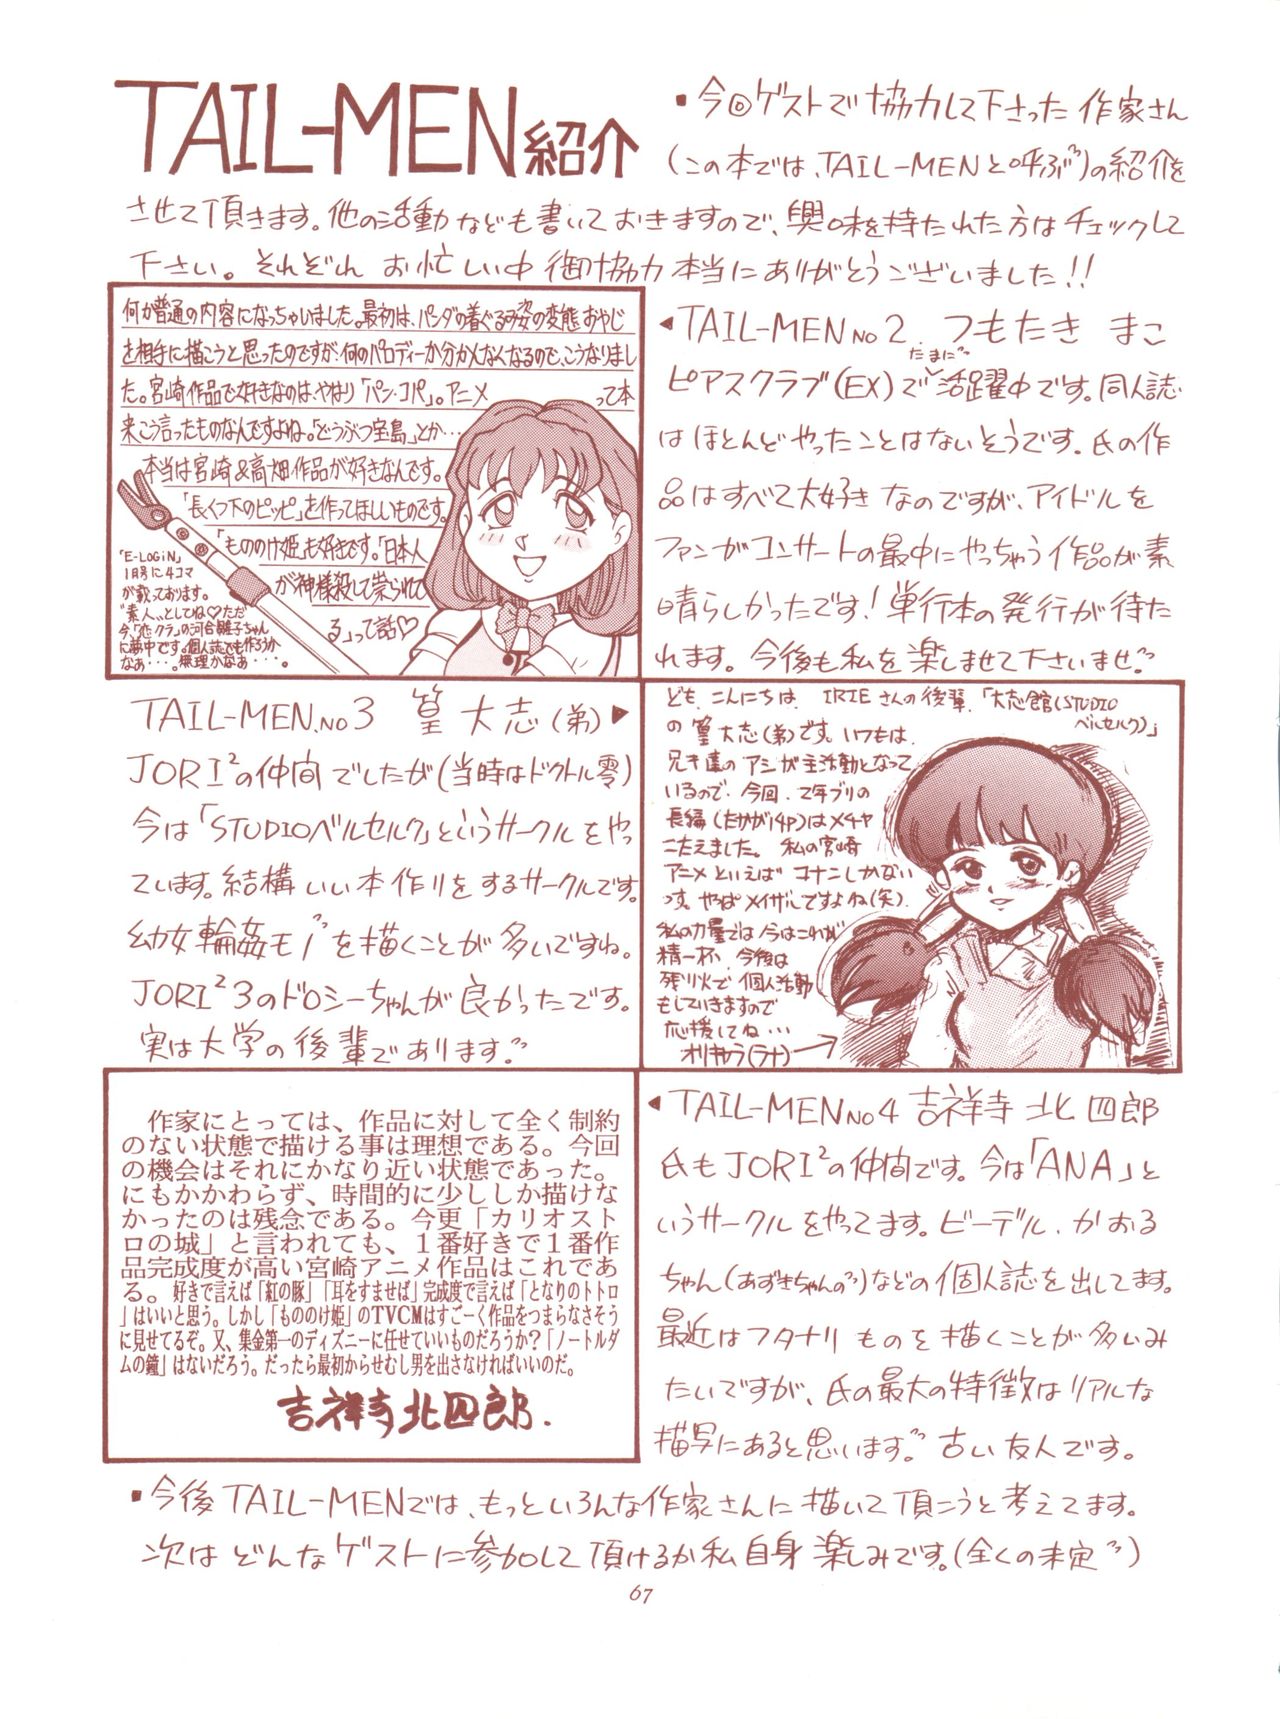 TAIL-MEN紹介
・今回ゲストで協力して下さった作家さん
(この本では、TAIL-MENと呼ぶ")の紹介を
させて頂きます。他の活動なども書いておきますので、興味を持たれた方はチェックして
下さい。それぞれ お忙しい中 御協力本当にありがとうございました!!
何か普通の内容になっちゃいました。最初は、パンダの着ぐるみ姿の変態おやじ
を相手に描こうと思ったのですが、何のパロディーか分かんなくなるので、こうなりまし
た。宮崎作品で好きなのは、やはり「パン・コパ」。アニメって本
来こう言ったものなんですよね。「どうぶつ宝島」とか…
本当は宮崎&高畑作品が好きなんです。
「長くつ下のピッピ」を作ってほしいものです。
「もののけ姫」も好きです。「日本人
が神様殺して祟られて
る」って話♡
「E-LOGiN」
1月号に4コマ
が載っております。
"素人"としてね♡ただ
今、「恋クラ」の河合雛子ちゃん
に夢中です。個人誌でも作ろうか
なぁ・・・。無理かなぁ・・・。
◂TAIL-MEN NO2 つもたき まこ
ピアスクラブ(EX)でたまに"活躍中です。同人誌
はほとんどやったことはないそうです。氏の作
品はすべて大好きなのですが、アイドルを
ファンがコンサートの最中にやっちゃう作品が素
晴らしかったです!単行本の発行が待た
れます。今後も私を楽しませて下さいませ"
TAIL-MEN.NO3 篁 大志(弟)▶
JORI²の仲間でしたが(当時はドクトル零)
今は「STUDIOベルセルク」というサークルをやっ
ています。結構いい本作りをするサークルです。
幼女輪姦モノ"を描くことが多いですね。
JORI²3のドロシーちゃんが良かったです。
実は大学の後輩であります"
ども、こんにちは、IRIEさんの後輩、「大志館(STUDIO
ベルセルク)」
の篁大志(弟)です。いつもは、
兄キ達のアシが主活動となって
いるので、今回、2年ブリの
長編(たかが14P)はメチャ
こたえました。私の宮崎
アニメといえばコナンしかない
っす。やっぱメイザルですよね(笑)。
私の力量では今はこれが
精一杯、今後は
残り火で個人活動
もしていきますので
応援してね…
オリキャラ(ラナ)→
作家にとっては、作品に対して全く制約
のない状態で描ける事は理想である。今回
の機会はそれにかなり近い状態であった。
にもかかわらず、時間的に少ししか描けな
かったのは残念である。今更「カリオスト
ロの城」と言われても、１番好きで１番作
品完成度が高い宮崎アニメ作品はこれであ
る。好きで言えば「紅の豚」「耳をすませば」完成度で言えば「となりのトトロ
」はいいと思う。しかし「もののけ姫」のTVCMはすごーく作品をつまらなさそう
に見せてるぞ。又、集金第一のディズニーに任せていいものだろうか？「ノートルダ
ムの鐘」はないだろう。だったら最初からせむし男を出さなければいいのだ。
吉祥寺北四郎.
◂TAIL-MEN NO4 吉祥寺 北四郎
氏もJORI²の仲間です。今は「ANA」と
いうサークルをやってます。ビーデル、かおる
ちゃん(あずきちゃんの")などの個人誌を出してます。
最近はフタナリものを描くことが多いみ
たいですが、氏の最大の特徴はリアルな
描写にあると思います"古い友人です。
・今後TAIL-MENでは、もっといろんな作家さんに描いて頂こうと考えてます。
次はどんなゲストに参加して頂けるか私自身楽しみです。(全くの未定")
67